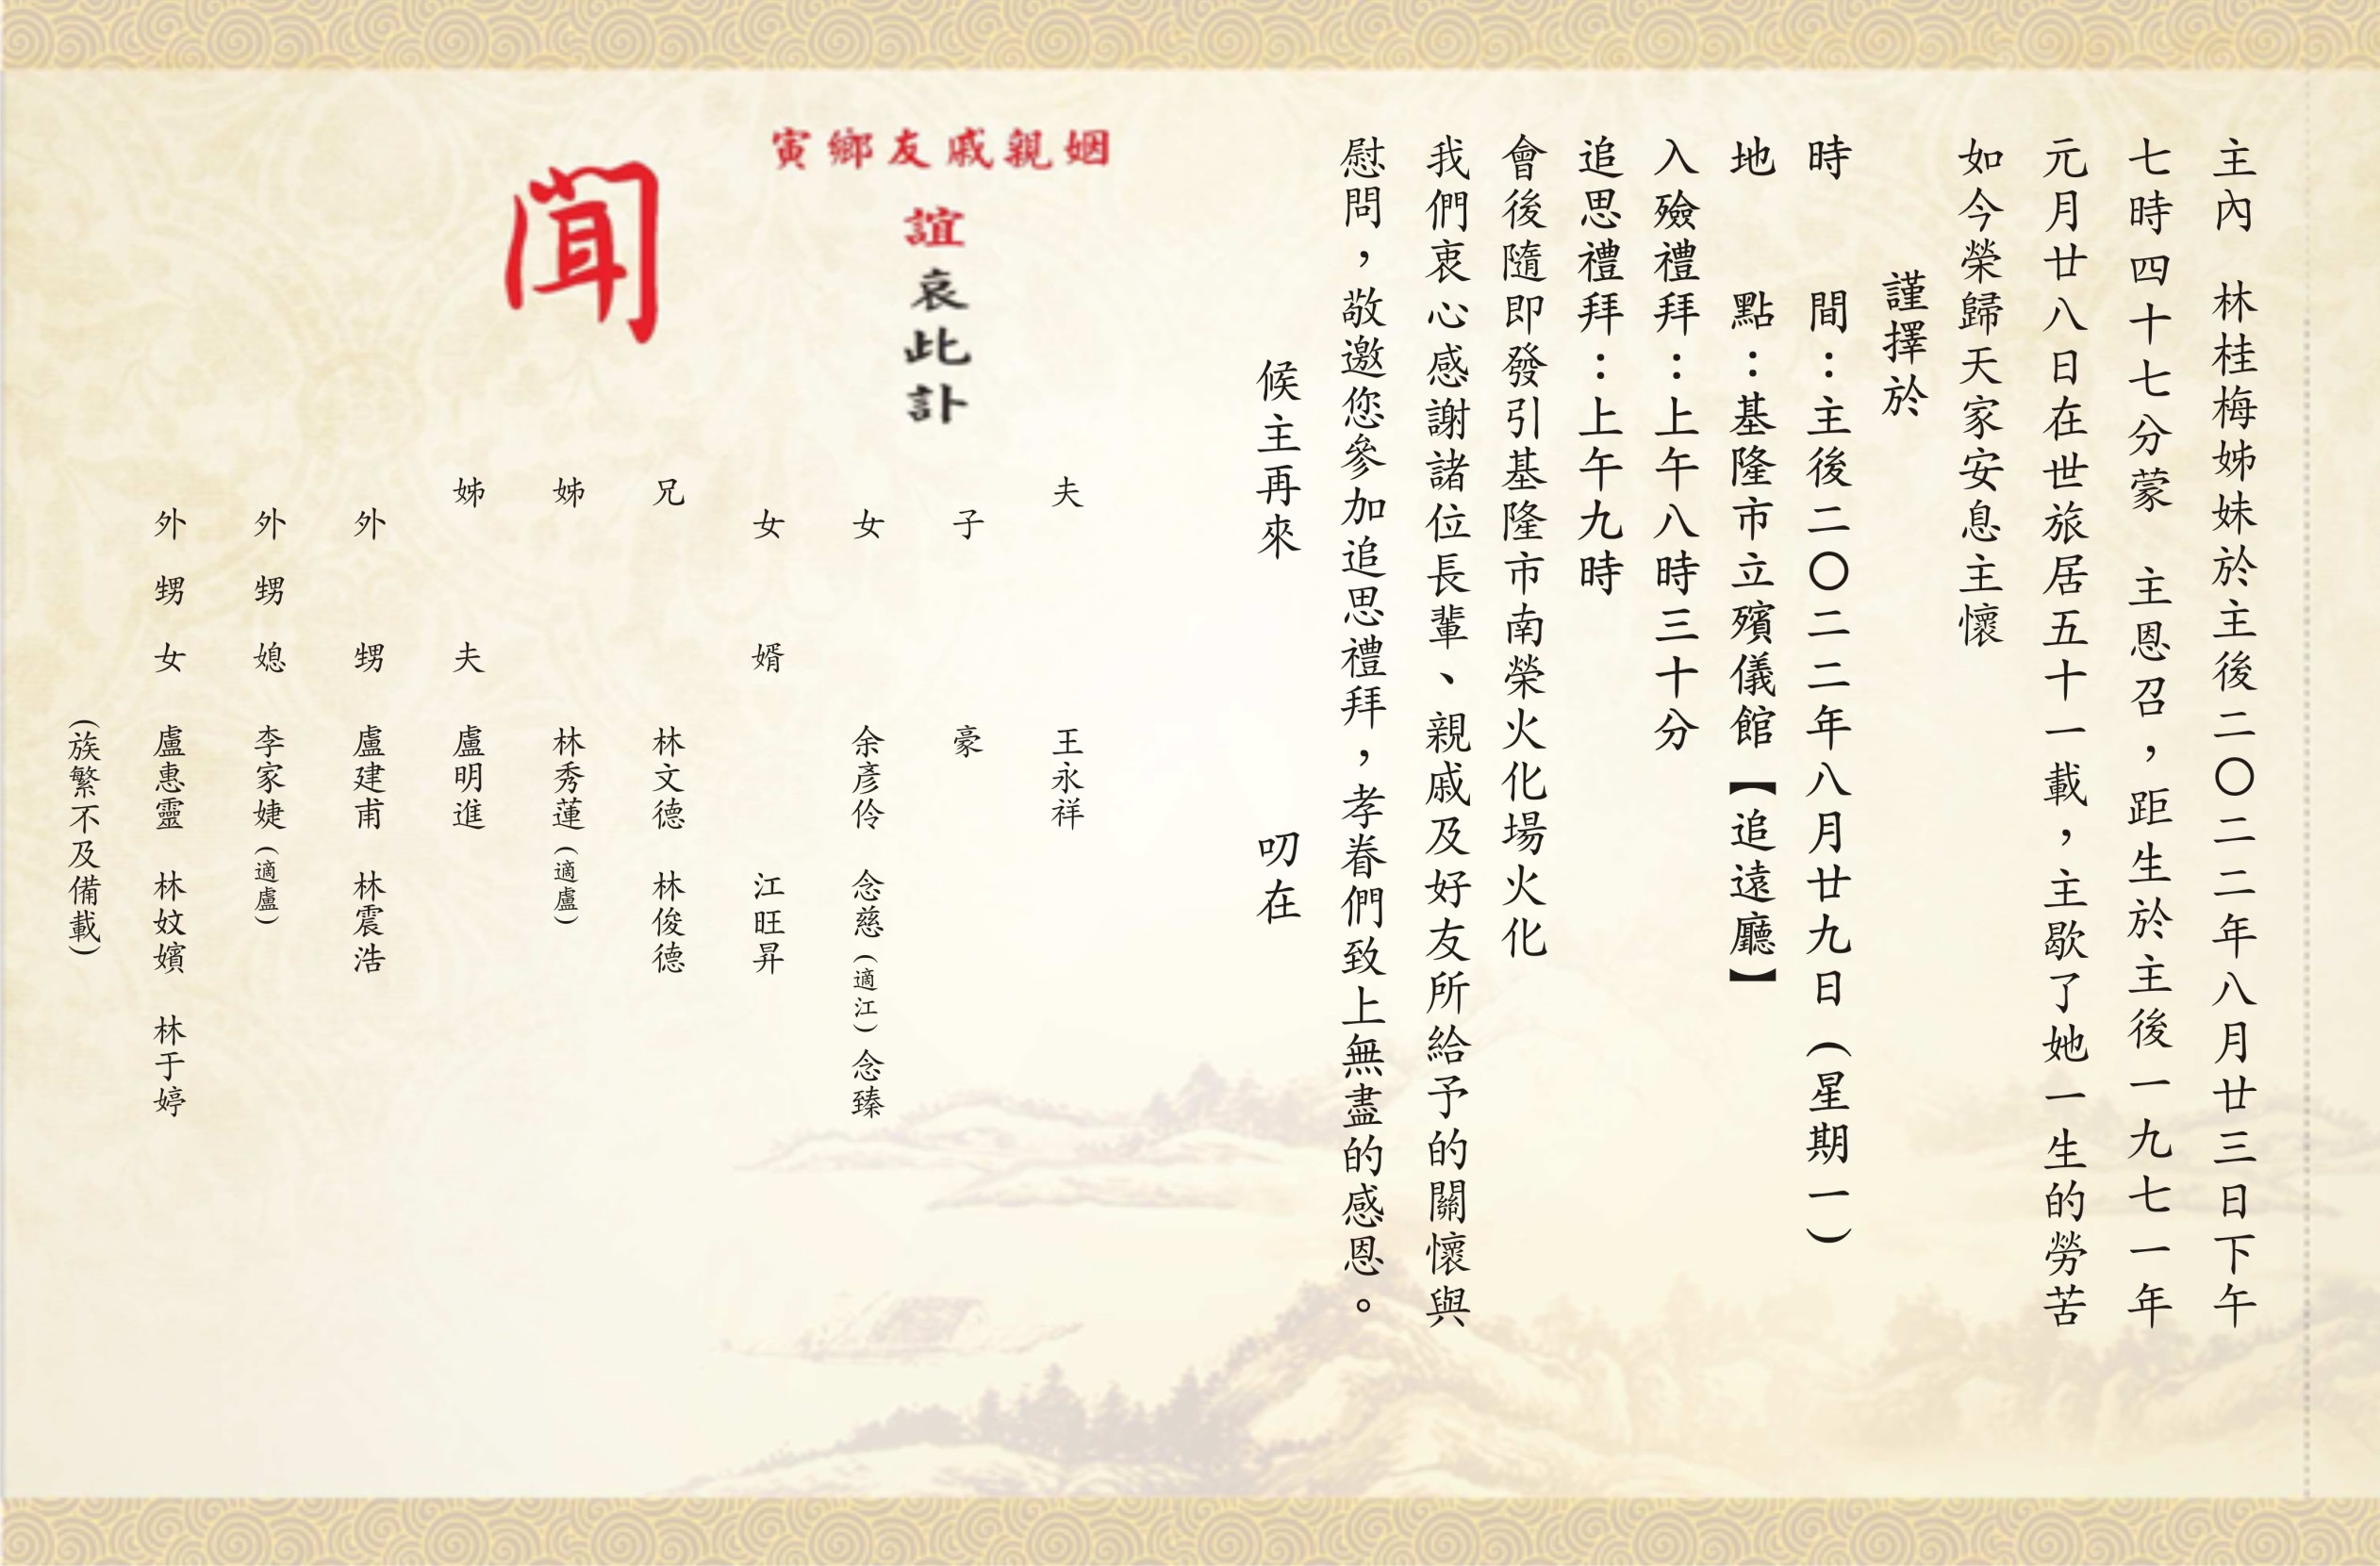 主內　林桂梅姊妹於主後二〇二二年八月廿三日下午
七時四十七分蒙　主恩召，距生於主後一九七一年
元月廿八日在世旅居五十一載，主歇了她一生的勞苦
如今榮歸天家安息主懷
謹擇於
時　　間：主後二〇二二年八月廿九日（星期一）
地　　點：基隆市立殯儀館【追遠廳】
入殮禮拜：上午八時三十分
追思禮拜：上午九時
會後隨即發引基隆市南榮火化場火化
我們衷心感謝諸位長輩、親戚及好友所給予的關懷與
慰問，敬邀您參加追思禮拜，孝眷們致上無盡的感恩。
候主再來　　　　　叨在
姻親戚友鄉寅
誼哀此訃
聞
夫　王永祥
子　豪
女　余彥伶　念慈（適江）念臻
女婿　江旺昇
兄　林文德　林俊德
姊　林秀蓮（適盧）
姊夫　盧明進
外甥　盧建甫　林震浩
外甥媳　李家婕（適盧）
外甥女　盧惠靈　林妏嬪　林于婷
（族繁不及備載）